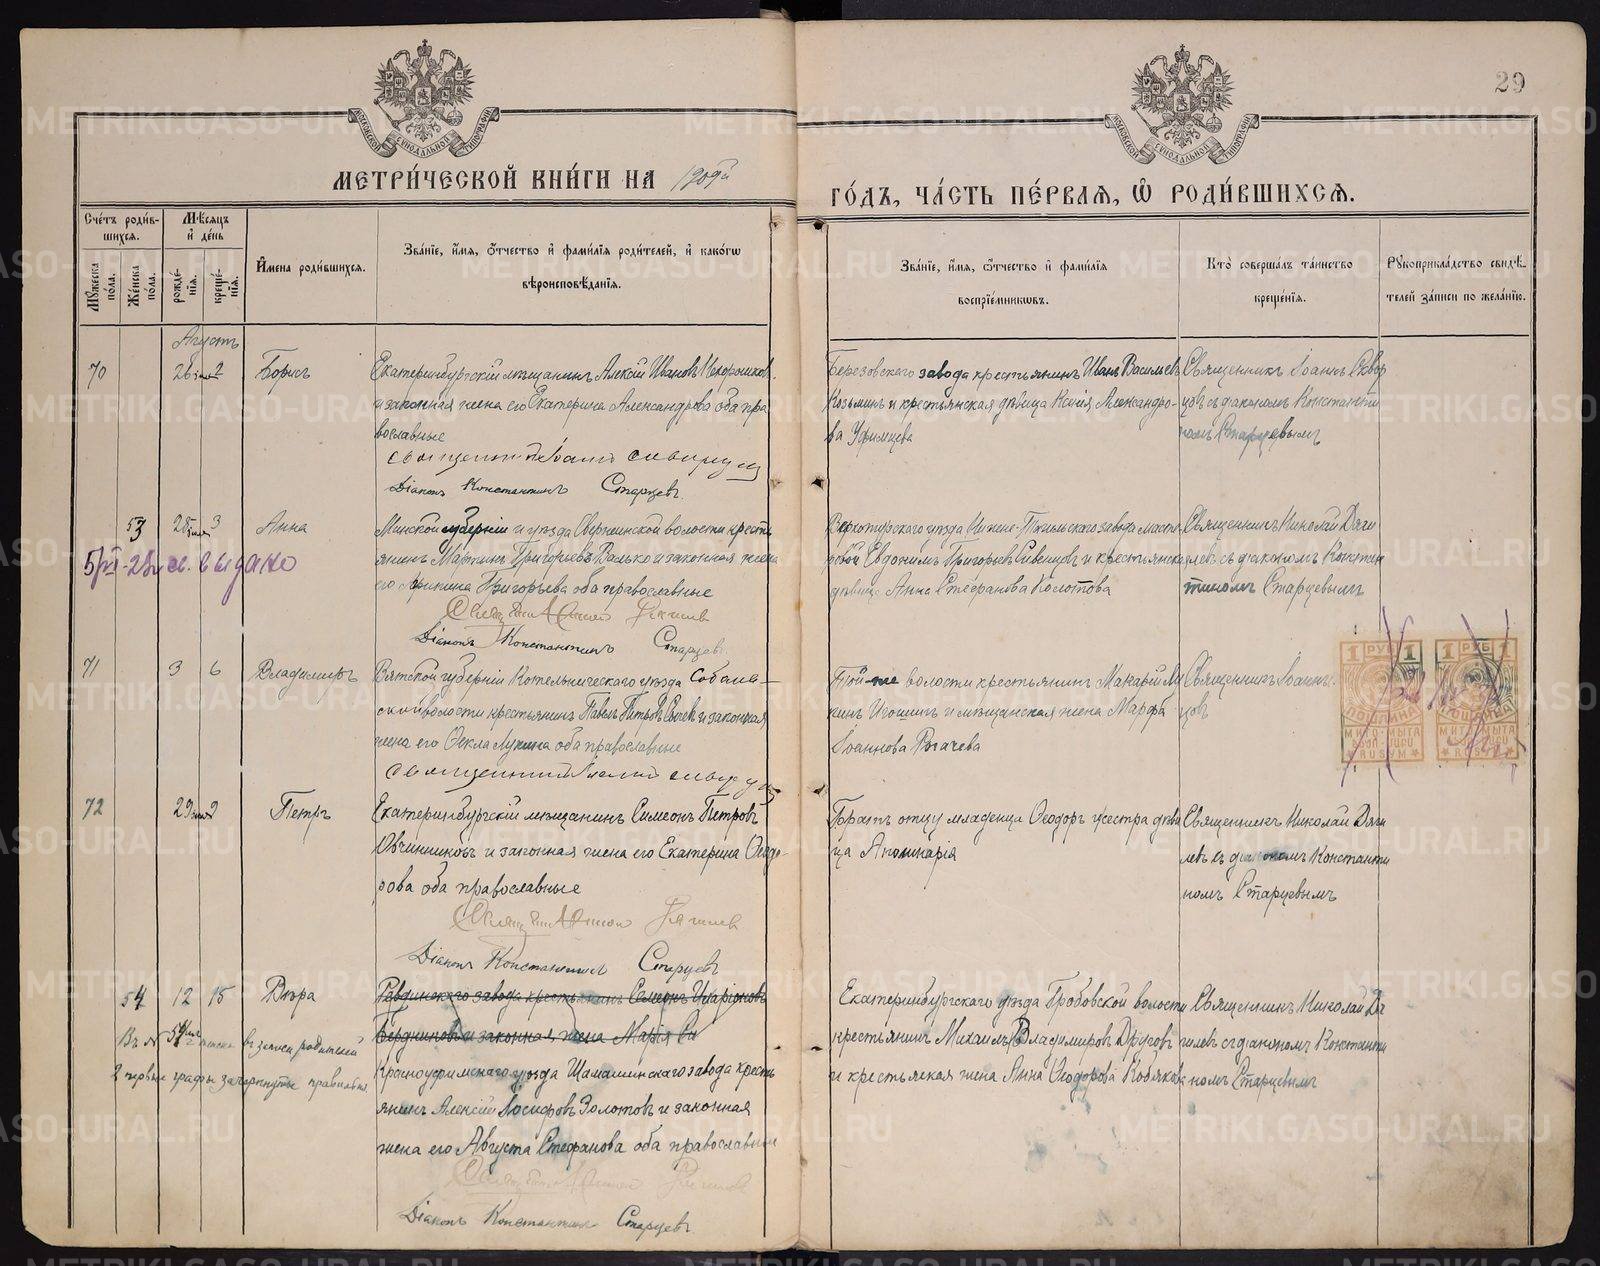 29
МОСКОВСКОЙ СѴНОДАЛЬНОЙ ТИПОГРАФІИ
МОСКОВСКОЙ СѴНОДАЛЬНОЙ ТИПОГРАФІИ
МЕТРИ́ЧЕСКОЙ КНИ́ГИ НА 1909й
ГО́ДЪ, ЧА́СТЬ ПЕ́РВАѦ, Ѡ҆ РОДИ́ВШИХСѦ.
Сче́тъ роди́в-
шихсѧ.
Мꙋ́жеска по́ла.
Же́нска по́ла.
Мѣ́сѧцъ и҆ де́нь
рожде́-
нїѧ.
креще́-
нїѧ.
И҆мена̀ роди́вшихсѧ.
Зва́нїе, и҆́мѧ, ѻ҆́тчество и҆ фами́лїѧ роди́телей, и҆ како́гѡ
вѣроисповѣ́данїѧ.
Зва́нїе, и҆́мѧ, ѻ҆́тчество и҆ фами́лїѧ
воспрїе́мникѡвъ.
Кто̀ соверша́лъ та́инство
креще́нїѧ.
Рꙋкоприкла́дство свидѣ́-
телей за́писи по жела́нїю.
Августъ
70
26 іюля 2
Борисъ
Екатеринбургскій мѣщанинъ Алексій Ивановъ Нехорошковъ
и законная жена его Екатерина Александрова оба пра
вославные
Священникъ Іоаннъ Скворцовъ
Діаконъ Константинъ Старцевъ
Березовского завода крестьянинъ Иванъ Васильевъ
Козьминъ и крестьянская дѣвица Ксенія Александро-
ва Уфимцева
Священникъ Іоаннъ Сквор
цовъ съ діакономъ Константи
номъ Старцевымъ
53
28 іюля 3
Анна
Минской губерніи и уѣзда Сверженской волости кресть
янинъ Мартинъ Григорьевъ Валько и законная жена
его Ирина Григорьева оба православные
Священникъ Николай Дягилевъ
Діаконъ Константинъ Старцевъ
Верхотурского уѣзда Нижне-Тагильского завода мастеро
вой Евдокимъ Григорьевъ Сивенцовъ и крестьянская
дѣвица Анна Стефанова Колотова
Священникъ Николай Дяги
левъ съ діакономъ Констан
тиномъ Старцевымъ
выдано
71
3
6
Владимиръ
Вятской губерніи Котельнического уѣзда
волости крестьянинъ Павелъ Петровъ и законная
жена его Ѳекла Лукина оба православные
Священникъ Іоаннъ Скворцовъ
Той-же волости крестьянинъ Макарій Лу
кинъ Игошинъ и мѣщанская жена Марфа
Іоаннова Рогачева
Священникъ Іоаннъ
цовъ
1 РУБ 1
1 РУБ 1
72
29 іюля 2
Петръ
Екатеринбургскій мѣщанинъ Симеонъ Петровъ
Овчинниковъ и законная жена его Екатерина Ѳеодо-
рова оба православные
Священникъ Николай Дягилевъ
Діаконъ Константинъ Старцевъ
Братъ отцу младенца Ѳеодоръ и сестра дѣви
ца Аполинарія
Священникъ Николай Дяги
левъ съ діакономъ Константи
номъ Старцевымъ
54
12
15
Вѣра
Ревдинского завода крестьянинъ Симеонъ Иларіоновъ
Бердниковъ и законная жена Марія Си
Красноуфимского уѣзда Шайтанского завода кресть
янинъ Алексій Іосифовъ Золотовъ и законная
жена его Августа Стефанова оба православные
Діаконъ Константинъ Старцевъ
Въ № 54 въ записи родителей
2 первые графы зачеркнутые
Екатеринбургского уѣзда Гробовской волости
крестьянинъ Михаилъ Владимировъ Друговъ
и крестьянская жена Анна Ѳеодорова Кобякова
Священникъ Николай Дя
гилевъ съ діакономъ Константи
номъ Старцевымъ
METRIKI.GASO-URAL.RU